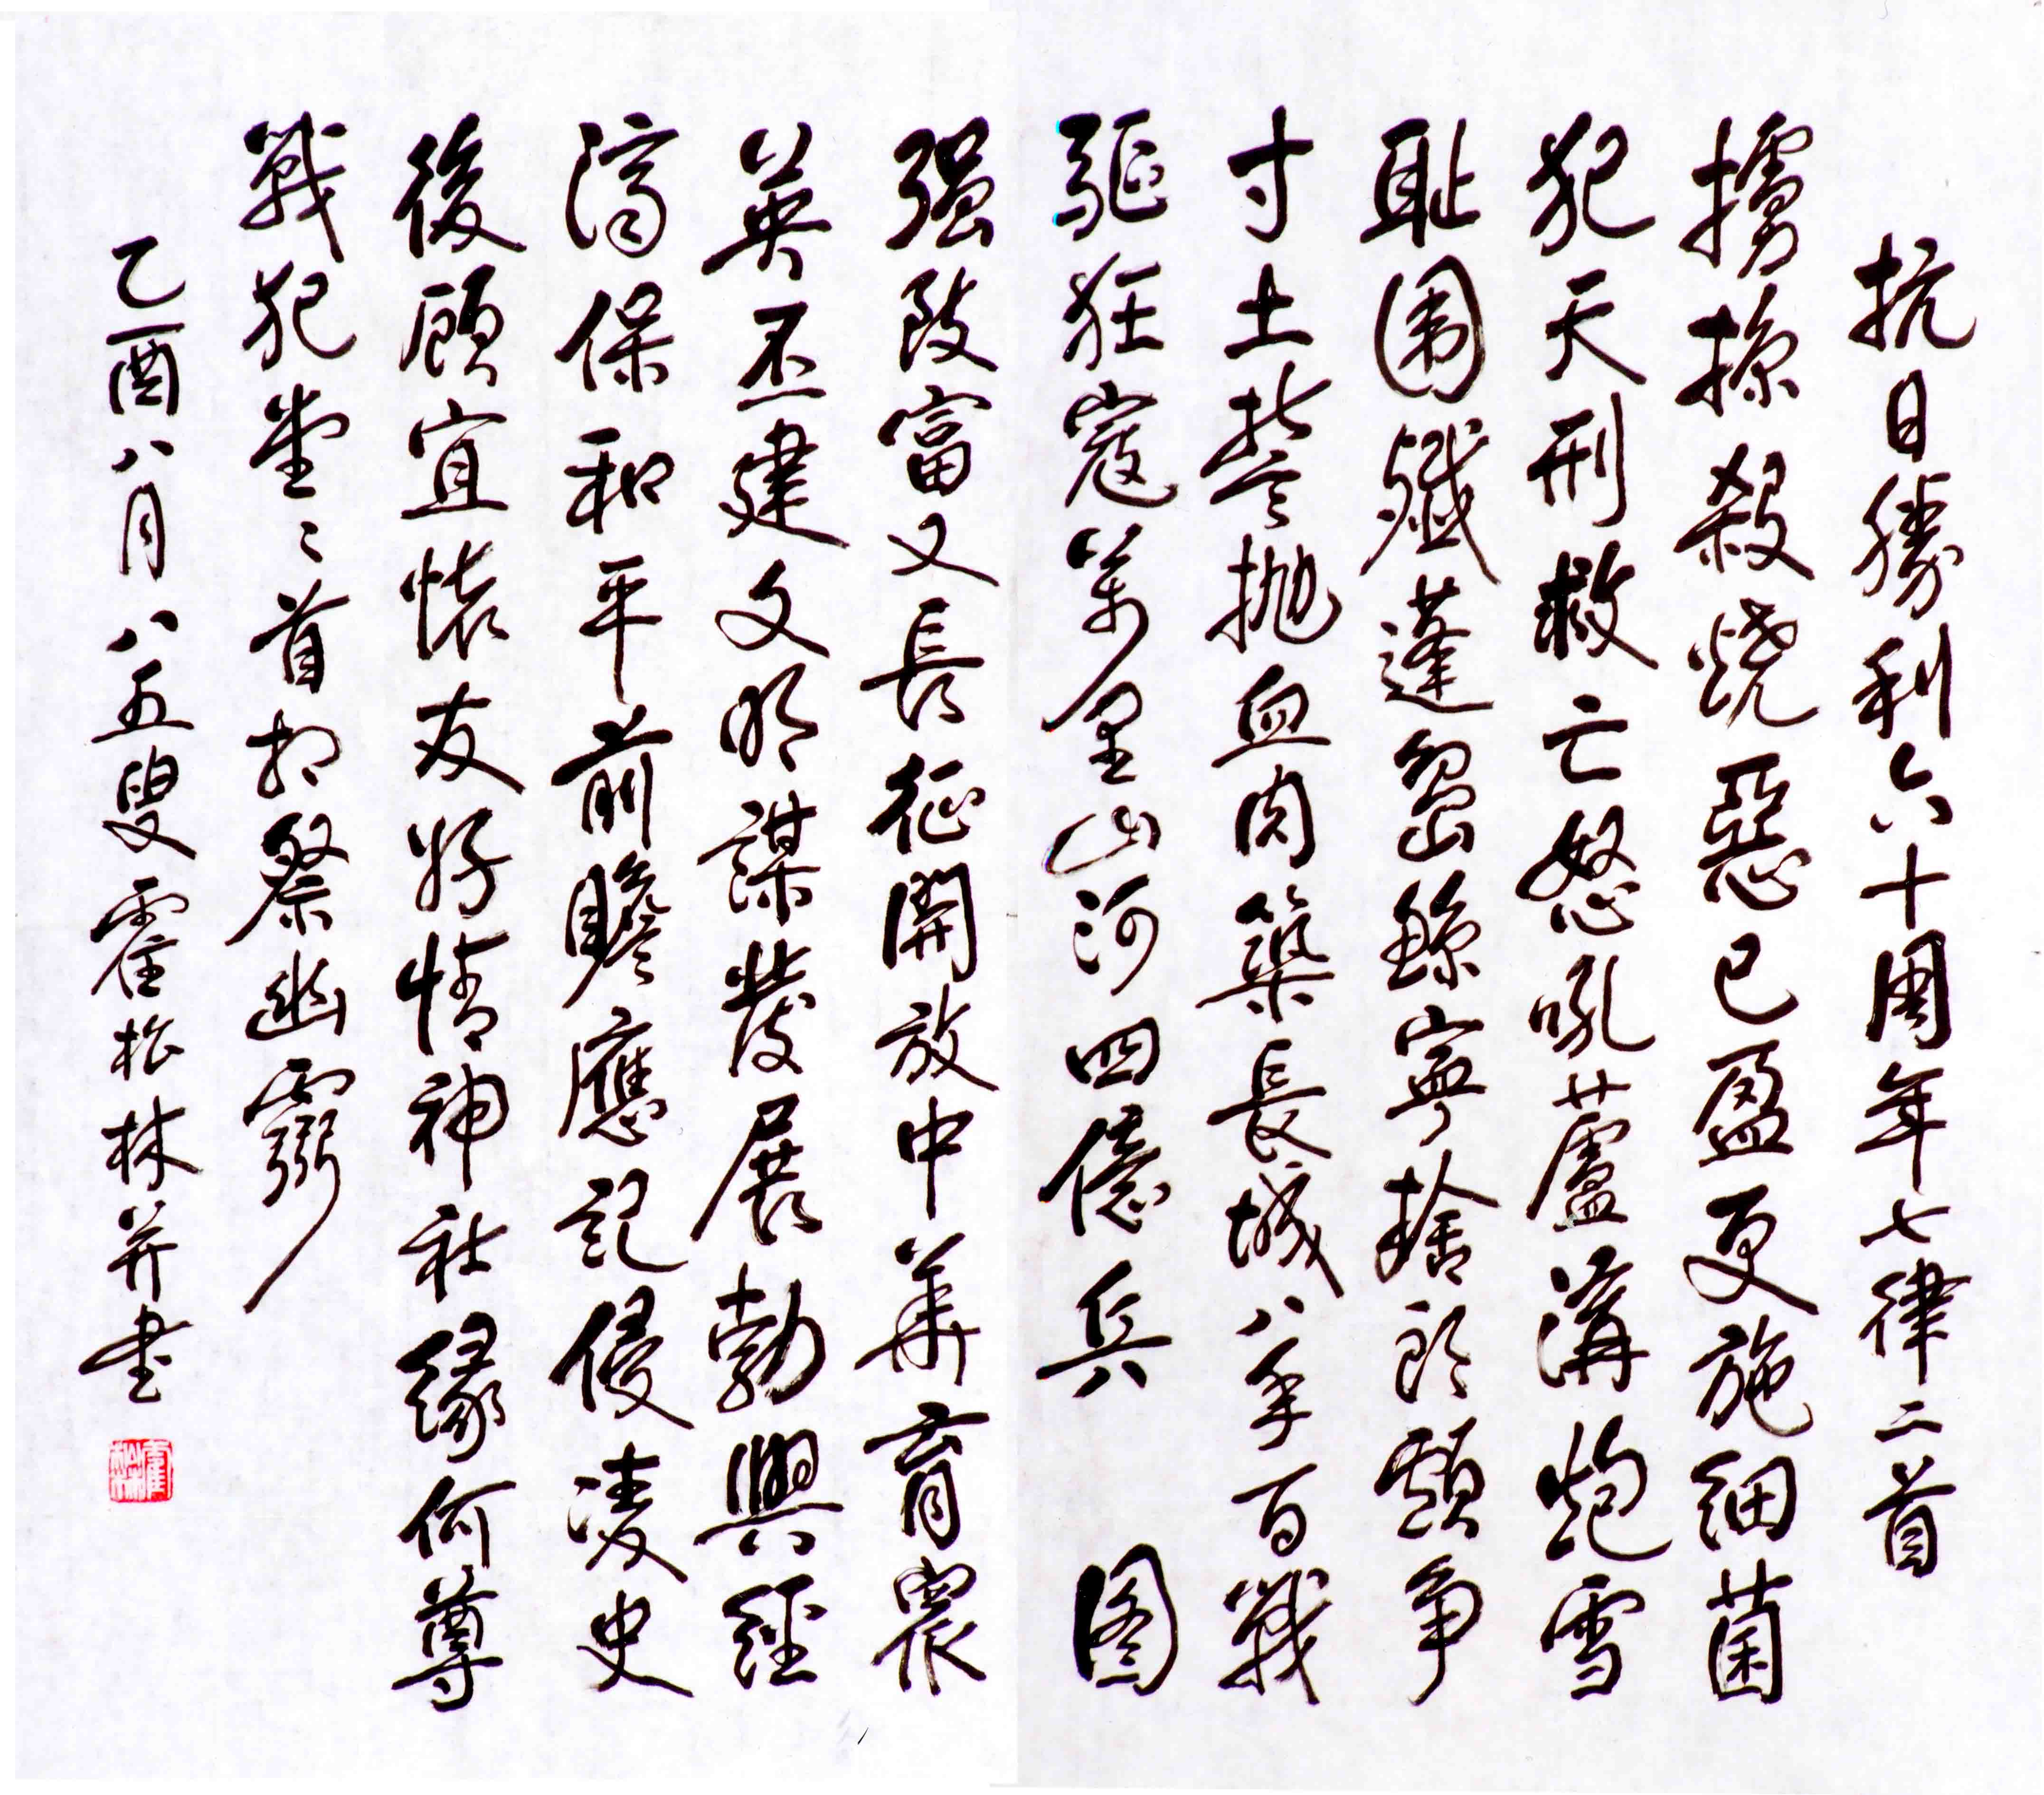 抗日勝利六十周年七律二首
擄掠殺燒惡已盈更施細菌
犯天刑救亡怒吼蘆溝炮雪
耻围殲蓬島鯨寧捨头顱争
寸土誓抛血肉築長城八年百戰
驅狂寇萬里山河四億兵 图
强致富又長征開放中華育衆
英丕建文明謀發展勃興經
濟保和平前瞻應記侵凌史
後顧宜懷友好情神社緣何尊
戰犯堂〻首相祭幽靈
乙酉八月八五叟霍松林并書
霍松林